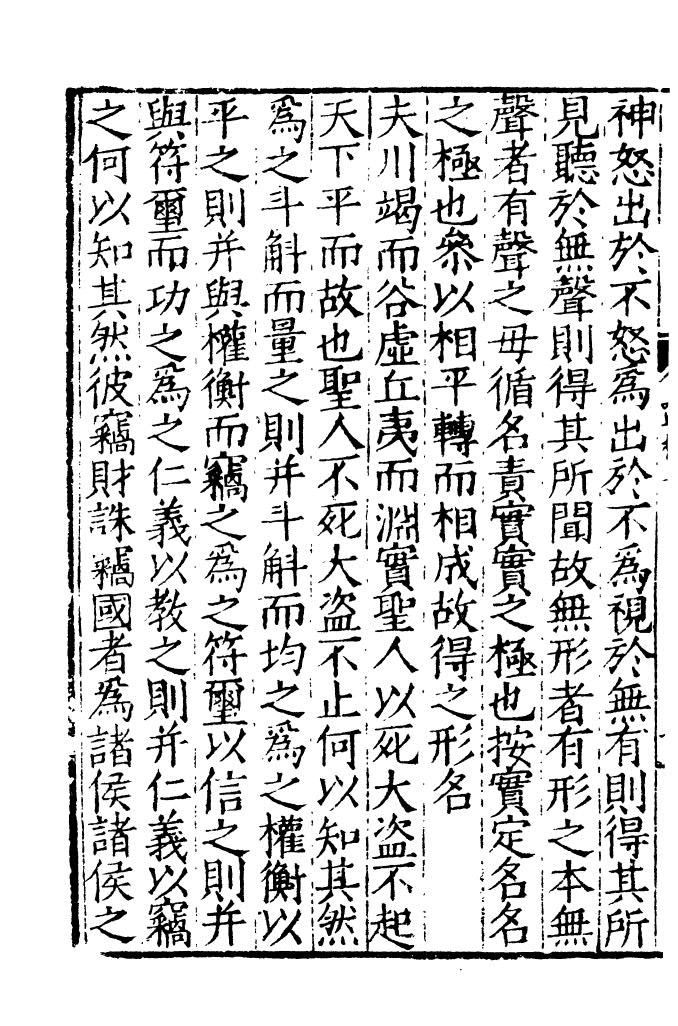 神怒出於不怒爲出於不爲視於無有則得其所
見聽於無聲則得其所聞故無形者有形之本無
聲者有聲之母循名責實實之極也按實定名名
之極也叅以相平轉而相成故得之形名
夫川竭而谷虛丘夷而淵實聖人以死大盗不起
天下平而故也聖人不死大盗不止何以知其然
爲之斗斛而量之則并斗斛而均之爲之權衡以
平之則并與權衡而竊之爲之符璽以信之則并
與符璽而功之爲之仁義以教之則并仁義以竊
之何以知其然彼竊財誅竊國者爲諸侯諸侯之